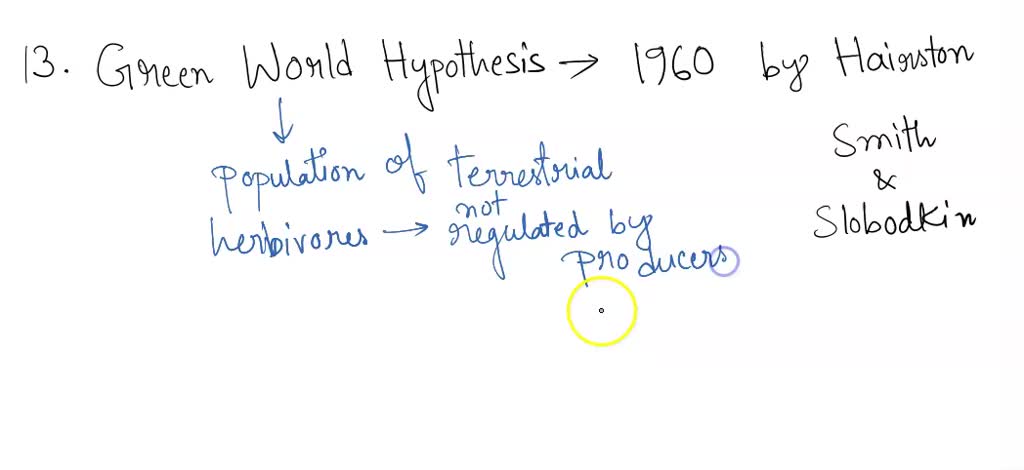 13. Green World Hypothesis → 1960 by Hairston
Smith
&
Slobodkin
↓
Population of terrestrial
herbivores → not regulated by
producers